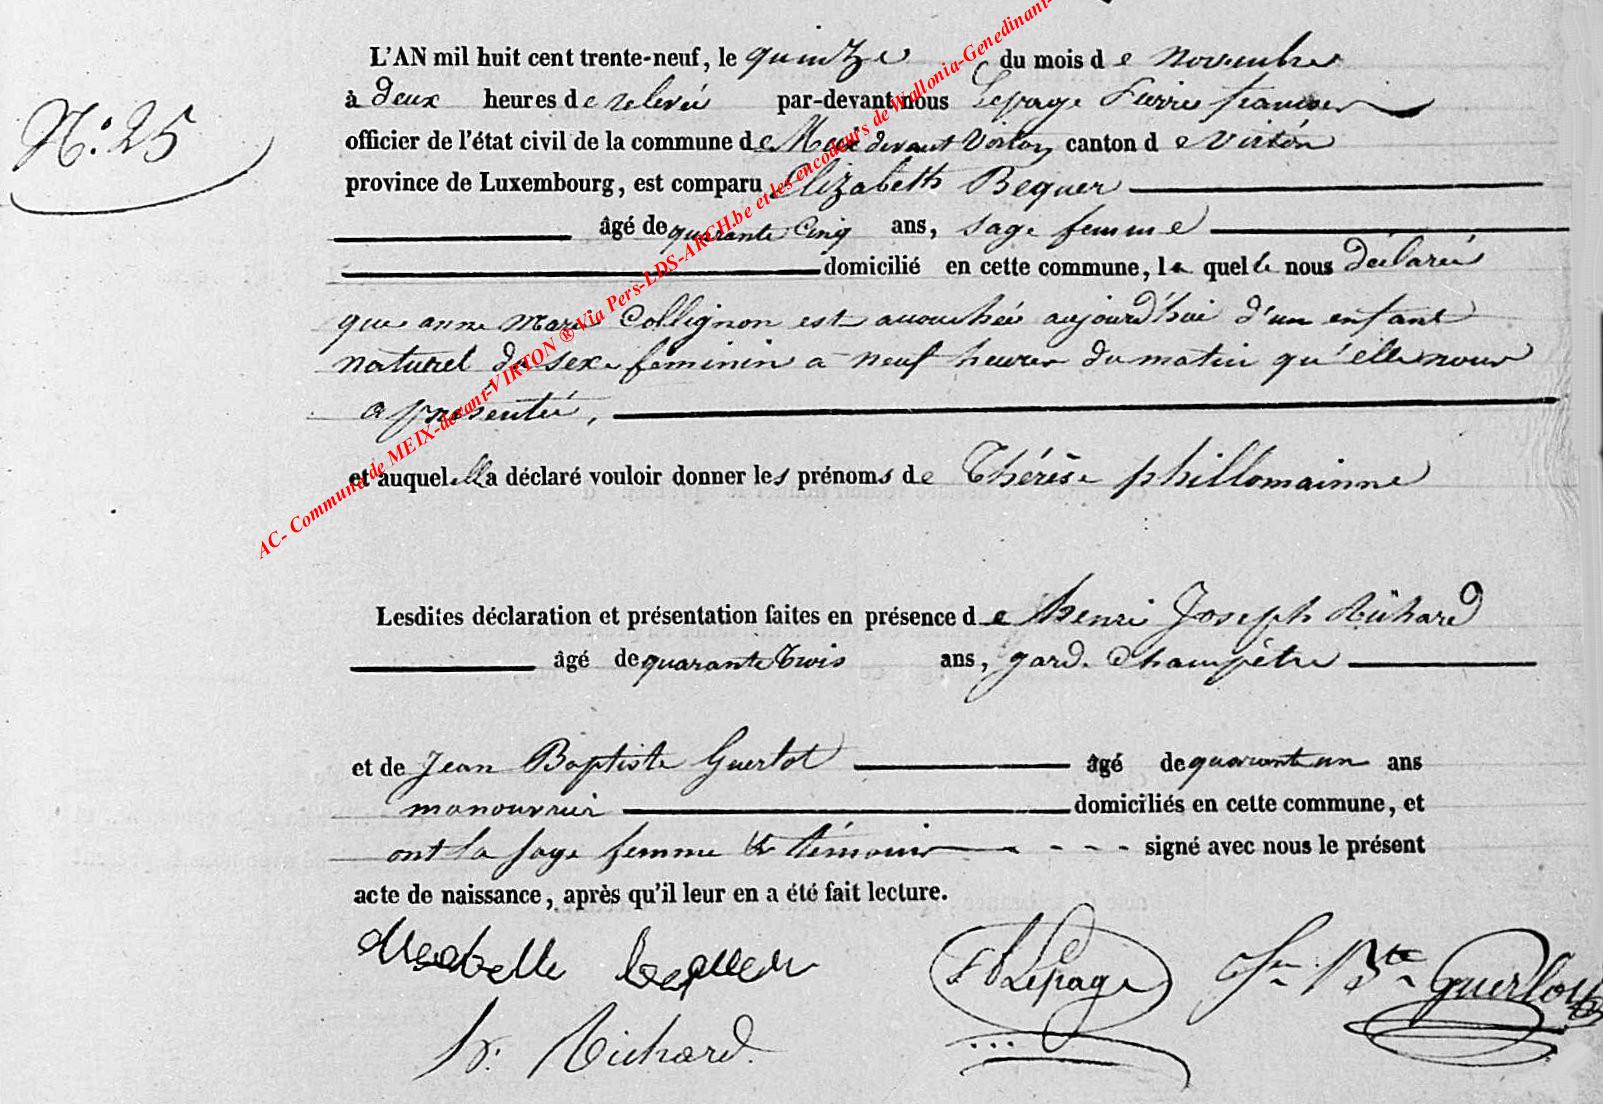 L'AN mil huit cent trente-neuf, le quinze du mois de novembre
à deux heures de relevée par-devant nous Lepage Pierre francois
N.° 25
officier de l'état civil de la commune de Meix devant Virton canton de virton
province de Luxembourg, est comparu Elizabeth Bequer
âgé de quarante Cinq ans, sage femme
domicilié en cette commune, la quelle nous déclarée
que anne Marie Collignon est accouchée aujourd'hui d'un enfant
naturel du sexe feminin a neuf heures du matin qu'elle nous
a présentée,
et auquel ella déclaré vouloir donner les prénoms de Thérèse phillomainne
Lesdites déclaration et présentation faites en présence de henri Joseph Richard
âgé de quarante trois ans, garde Champêtre
et de Jean Baptiste Guerlot âgé de quarante un ans
manouvrier domiciliés en cette commune, et
ont la sage femme & témoins signé avec nous le présent
acte de naissance, après qu'il leur en a été fait lecture.
bequer Lepage Jn Bte Guerlot
h. Richard
AC- Commune de MEIX-devant-VIRTON ® Via Pers-LDS-ARCH.be et les encodeurs de Wallonia-Genedinant-